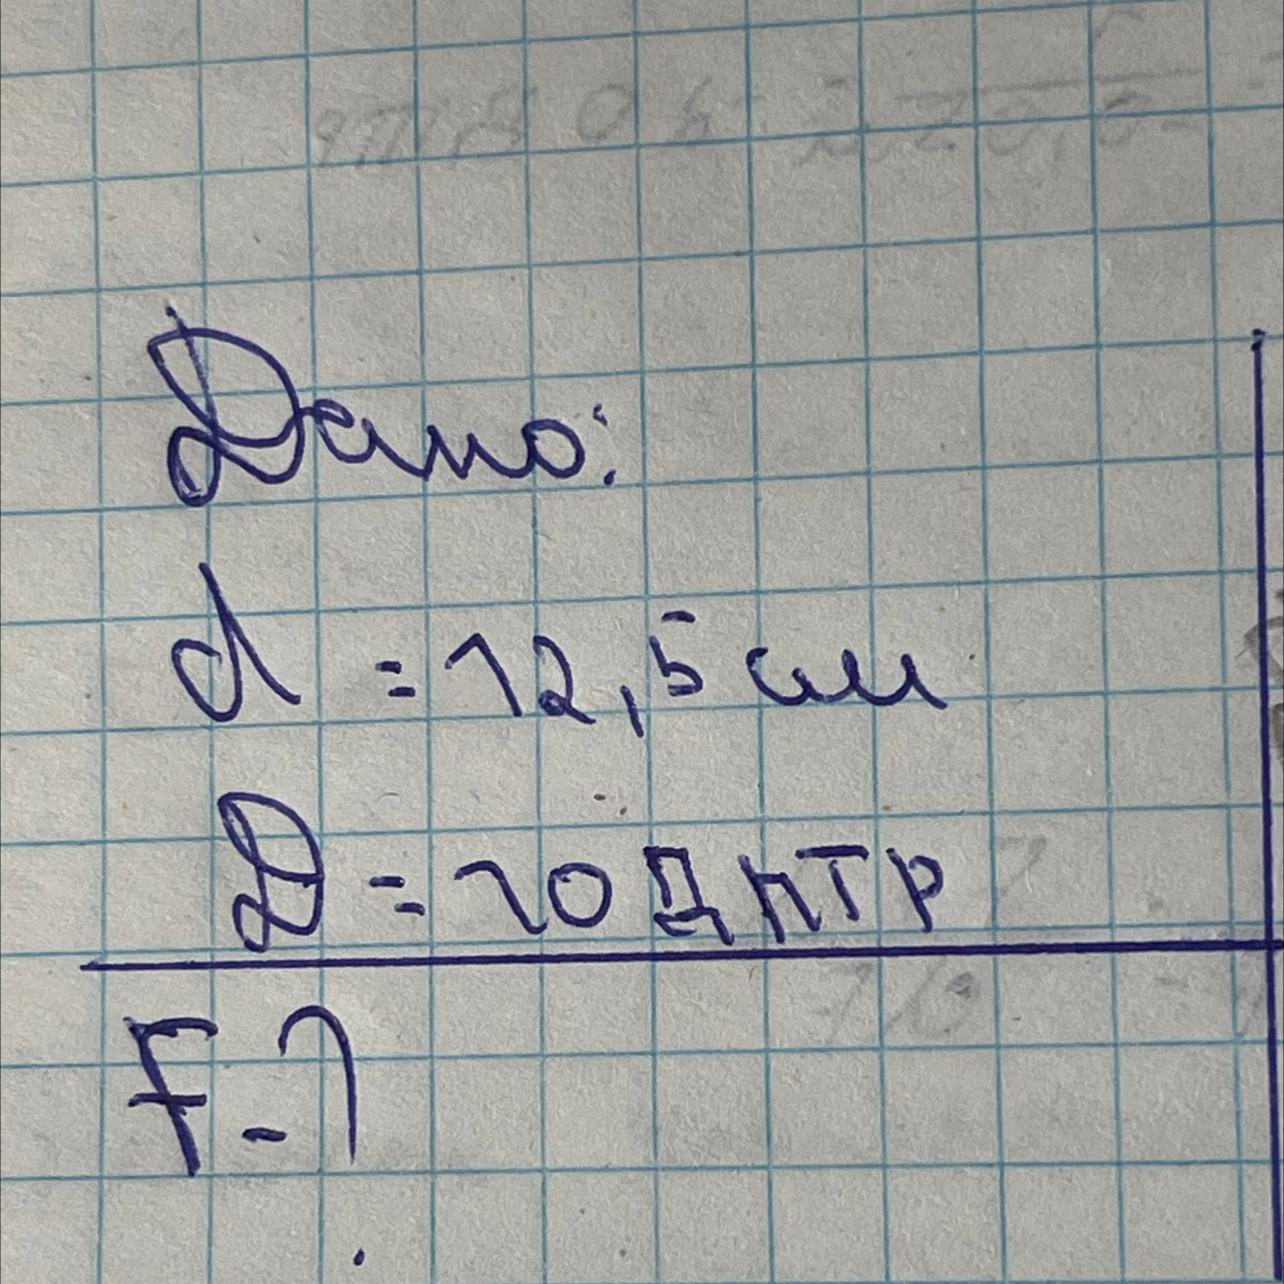 Дано:
d = 12,5 см
D = 10 Дптр
F - ?